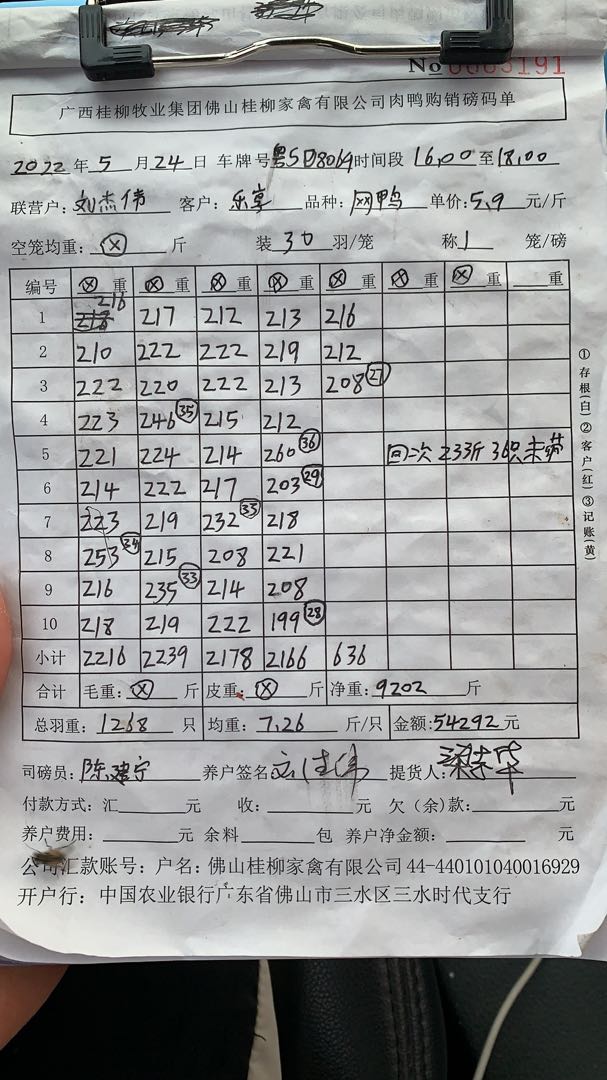 No 0003191
广西桂柳牧业集团佛山桂柳家禽有限公司肉鸭购销磅码单
2022 年 5 月 24 日 车牌号 粤SD8069 时间段 16,00 至 18,00
联营户: 刘杰伟 客户: 乐享 品种: 网鸭 单价: 5.9 元/斤
空笼均重: ⊗ 斤 装 30 羽/笼 称 1 笼/磅
编号 ⊗ 重 ⊗ 重 ⊗ 重 ⊗ 重 ⊗ 重 ⊗ 重 ⊗ 重 重
1 216 217 212 213 216
2 210 222 222 219 212
3 222 220 222 213 208 ㉗
4 223 246 ㉟ 215 212
5 221 224 214 260 ㊱ 回二次 233斤 36只未带
6 214 222 217 203 ㉙
7 223 219 232 ㉝ 218
8 253 ㉞ 215 208 221
9 216 235 ㉝ 214 208
10 218 219 222 199 ㉘
小计 2216 2239 2178 2166 636
合计 毛重: ⊗ 斤 皮重: ⊗ 斤 净重: 9202 斤
总羽重: 1268 只 均重: 7.26 斤/只 金额: 54292 元
司磅员: 陈建宁 养户签名 提货人:
付款方式: 汇 元 收: 元 欠(余)款: 元
养户费用: 元 余料 包 养户净金额: 元
公司汇款账号: 户名: 佛山桂柳家禽有限公司 44-440101040016929
开户行: 中国农业银行广东省佛山市三水区三水时代支行
①存根(白)②客户(红)③记账(黄)